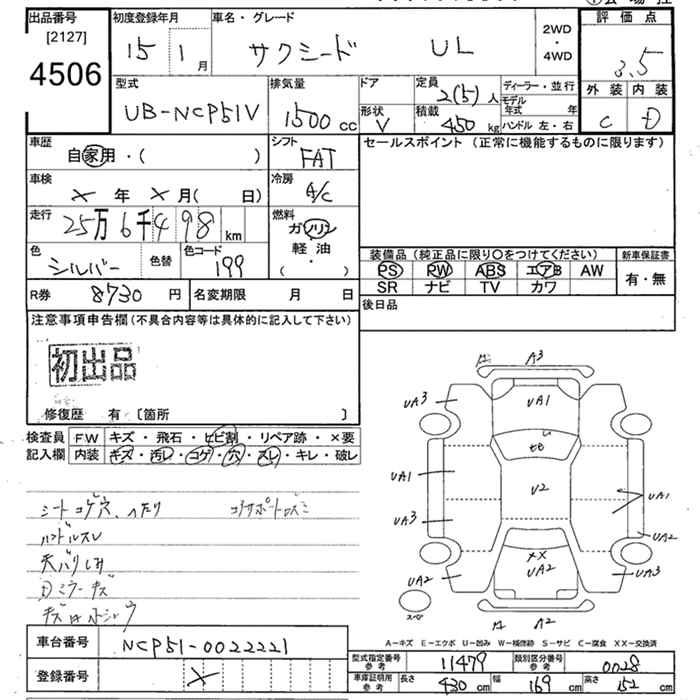 出品番号
[2127]
4506
初度登録年月
15 1月
車名・グレード
サクシード UL
2WD
・
4WD
評価点
3.5
外装 内装
C D
型式
UB-NCP51V
排気量
1500cc
ドア
形状
V
定員
2(5)人
積載
450kg
ディーラー・並行
モデル年式 年
ハンドル左・右
車歴
自家用・( )
シフト
FAT
車検
× 年 × 月( 日)
冷房
A/C
走行
25万6千498km
燃料
ガソリン
軽油
( ・ )
色
シルバー
色替
色コード
199
R券 8730円
名変期限 月 日
セールスポイント(正常に機能するものに限ります)
装備品(純正品に限り○をつけてください)
PS PW ABS エアB AW
SR ナビ TV カワ
新車保証書
有・無
後日品
注意事項申告欄(不具合内容等は具体的に記入して下さい)
初出品
修復歴 有〔箇所 〕
検査員記入欄
FW キズ・飛石・ヒビ割・リペア跡・×要
内装 キズ・汚レ・コゲ・穴・スレ・キレ・破レ
シートコゲ穴、ヘタリ
ハンドルスレ
天バリしみ
A3
UA3
UA1
UA3
UA1
UA3
UA2
U2
UA1
UA2
UA3
××
UA2
A2
スペア
A-キズ E-エクボ U-凹み W-補修跡 S-サビ C-腐食 XX-交換済
車台番号 NCP51-0022221
登録番号 ×
型式指定番号参考 11479
類別区分番号参考 0028
車庫証明用参考 長さ 430cm 幅 169cm 高さ 152cm